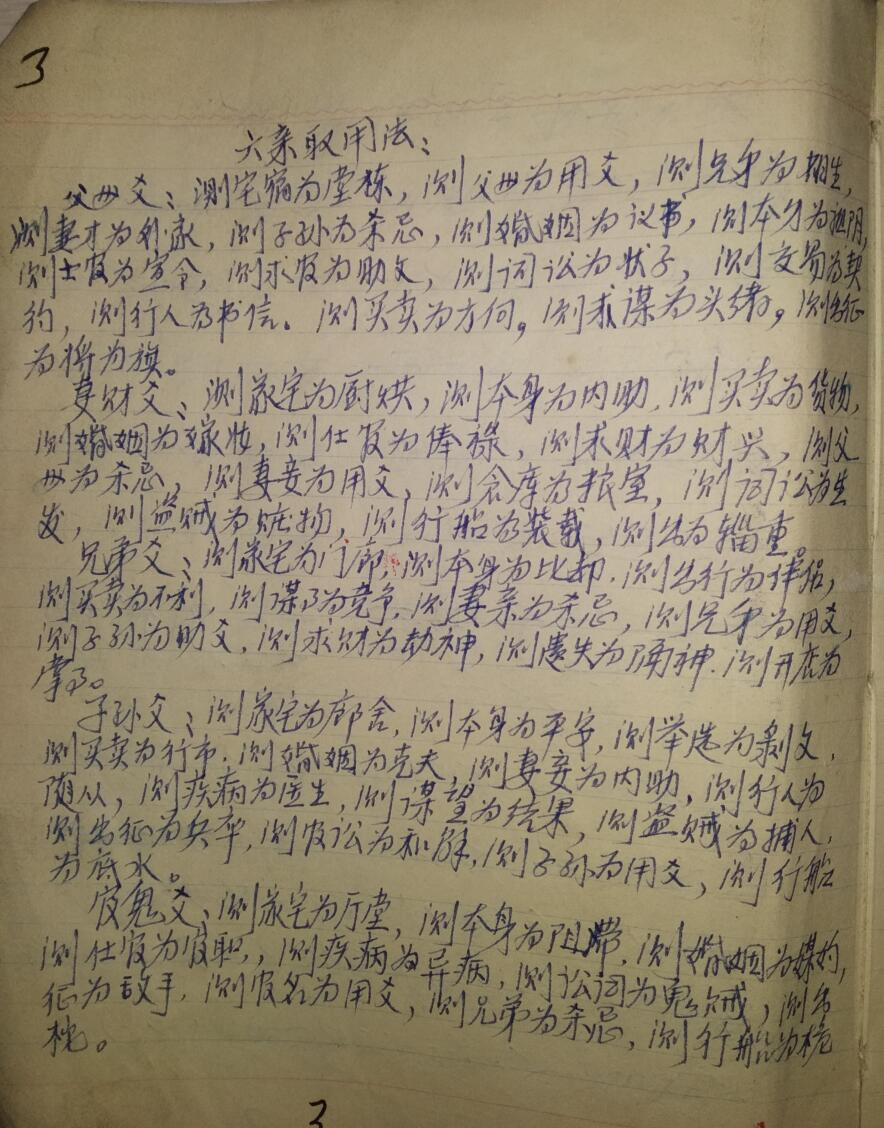 3
六亲取用法：
父母爻：测宅宿为堂栋，测父母为用爻，测兄弟为相生，
测妻才为外家，测子孙为杀忌，测婚姻为议书，测本身为祖阴，
测士官为宣令，测求官为助文，测词讼为状子，测交易为契
约，测行人为书信。测买卖为方何，测求谋为头绪，测出征
为将为旗。
妻财爻：测家宅为厨烘，测本身为内助，测买卖为货物，
测婚姻为嫁妆，测仕官为俸禄，测求财为财兴，测父
母为杀忌，测妻妾为用爻，测仓库为粮室，测词讼为生
发，测盗贼为赃物，测行船为装载，测出为辎重。
兄弟爻：测家宅为门廊，测本身为比却，测出行为伴侣，
测买卖为不利，测谋了为竞争，测妻亲为杀忌，测兄弟为用爻，
测子孙为助爻，测求财为劫神，测遗失为神，测开店为
掌了。
子孙爻：测家宅为廊舍，测本身为平安，测举选为剥文，
测买卖为行市，测婚姻为克夫，测妻妾为内助，测行人为
随从，测疾病为医生，测谋望为结果，测盗贼为捕人，
测出征为兵卒，测官讼为和解，测子孙为用爻，测行船
为底水。
官鬼爻：测家宅为厅堂，测本身为阻滞，测婚姻为媒妁，
测仕官为官职，测疾病为异病，测讼词为鬼贼，测出
征为敌手，测官名为用爻，测兄弟为杀忌，测行船为桅
桅。
3